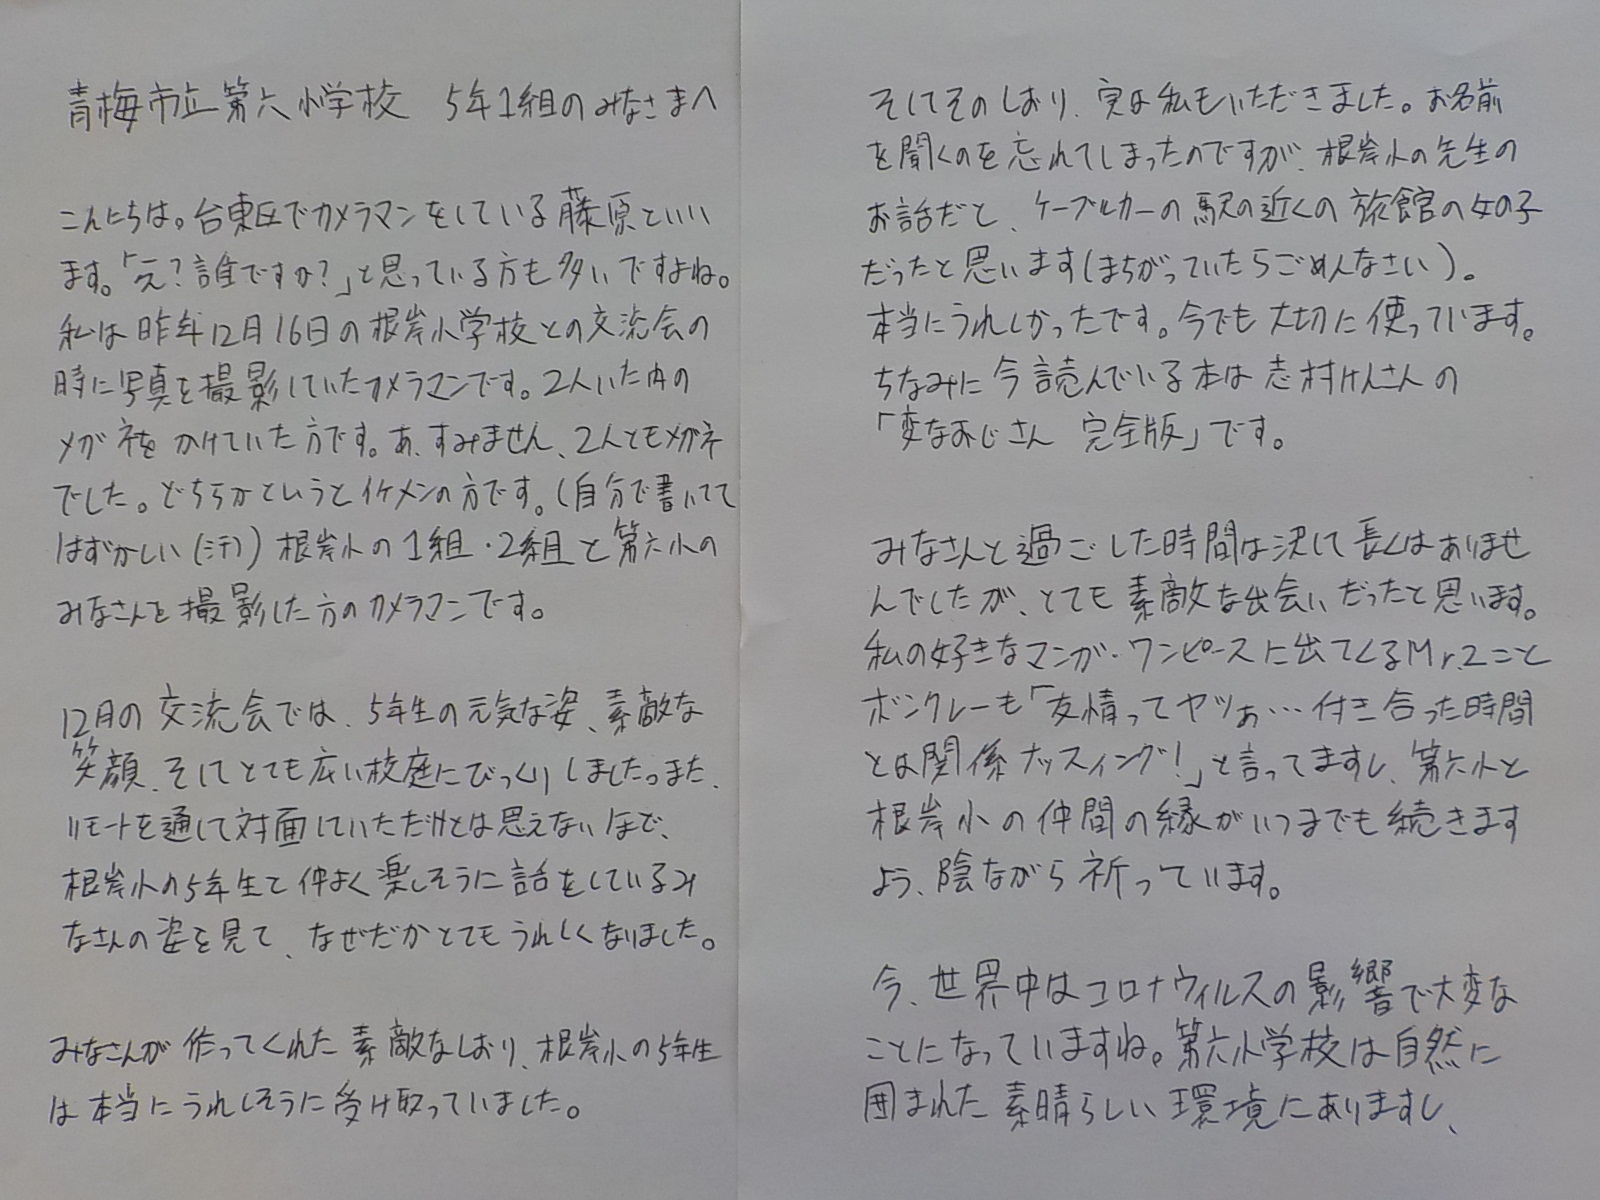 青梅市立第六小学校 5年1組のみなさまへ
こんにちは。台東区でカメラマンをしている藤原といい
ます。「え?誰ですか?」と思っている方も多いですよね。
私は昨年12月16日の根岸小学校との交流会の
時に写真を撮影していたカメラマンです。2人いた内の
メガネをかけていた方です。あ、すみません、2人ともメガネ
でした。どちらかというとイケメンの方です。(自分で書いてて
はずかしい(汗))根岸小の1組・2組と第六小の
みなさんを撮影した方のカメラマンです。
12月の交流会では、5年生の元気な姿、素敵な
笑顔、そしてとても広い校庭にびっくりしました。また、
リモートを通して対面していただけとは思えないほど、
根岸小の5年生と仲よく楽しそうに話をしているみ
なさんの姿を見て、なぜだかとてもうれしくなりました。
みなさんが作ってくれた素敵なしおり、根岸小の5年生
は本当にうれしそうに受け取っていました。
そしてそのしおり、実は私もいただきました。お名前
を聞くのを忘れてしまったのですが、根岸小の先生の
お話だと、ケーブルカーの駅の近くの旅館の女の子
だったと思います(まちがっていたらごめんなさい)。
本当にうれしかったです。今でも大切に使っています。
ちなみに今読んでいる本は志村けんさんの
「変なおじさん 完全版」です。
みなさんと過ごした時間は決して長くはありませ
んでしたが、とても素敵な出会いだったと思います。
私の好きなマンガ・ワンピースに出てくるMr.2こと
ボンクレーも「友情ってヤツぁ…付き合った時間
とは関係ナッスィング!」と言ってますし、第六小と
根岸小の仲間の縁がいつまでも続きます
よう、陰ながら祈っています。
今、世界中はコロナウィルスの影響で大変な
ことになっていますね。第六小学校は自然に
囲まれた素晴らしい環境にありますし、